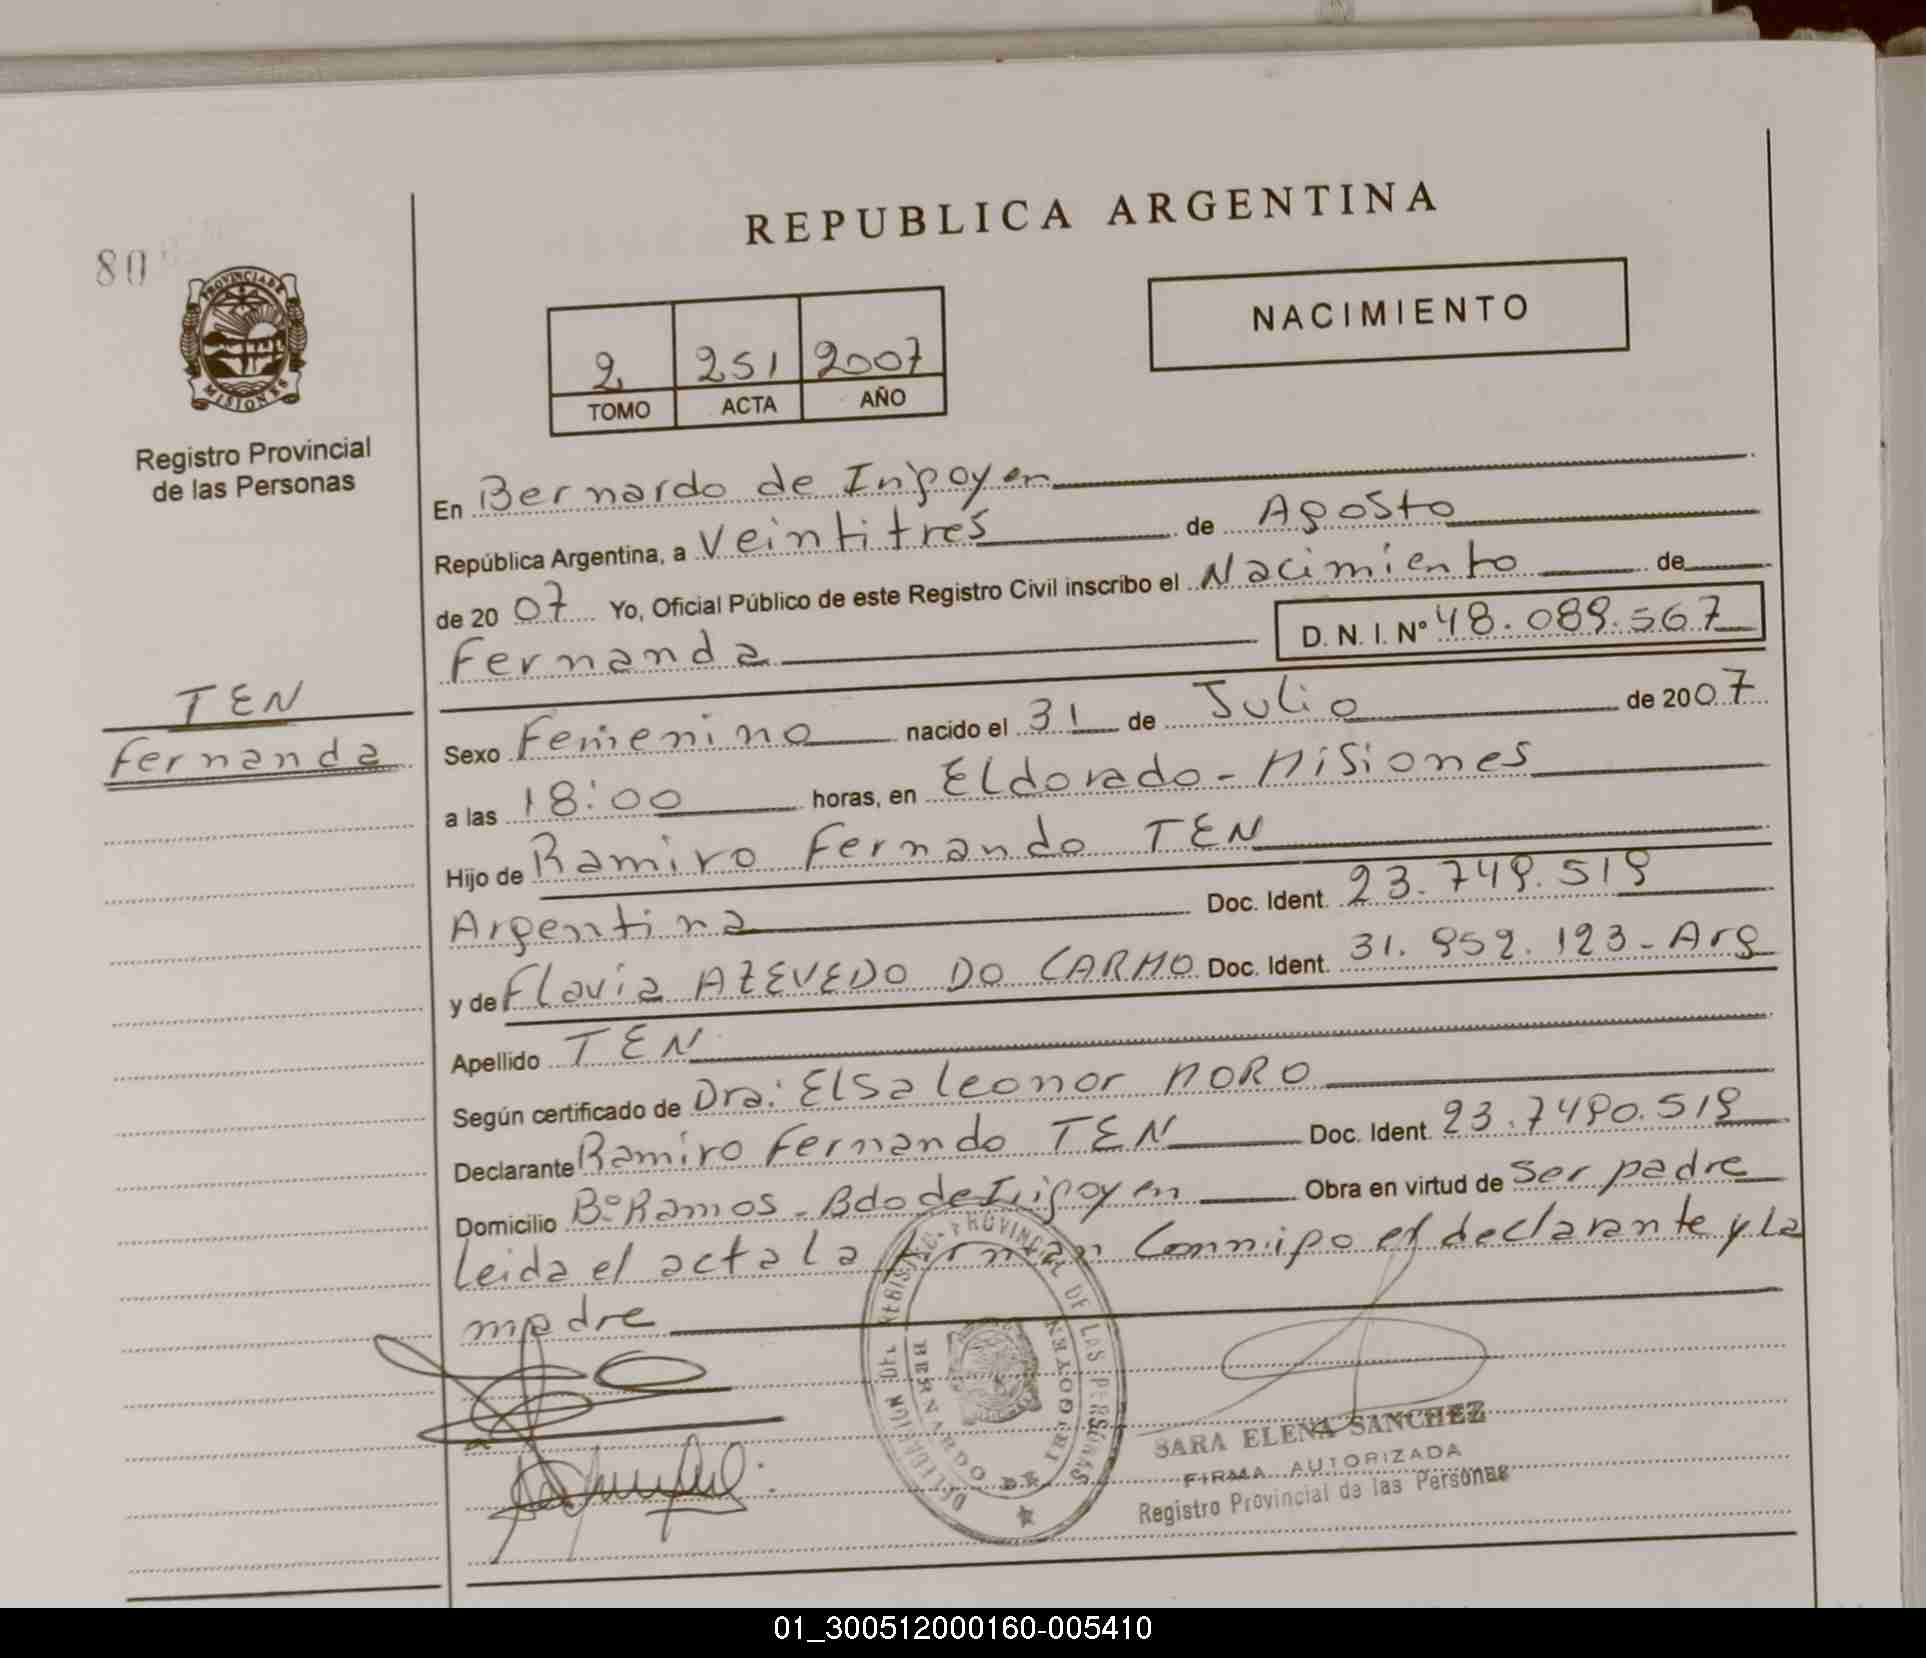 REPUBLICA ARGENTINA
80
PROVINCIA DE
MISIONES
Registro Provincial
de las Personas
NACIMIENTO
2 251 2007
TOMO ACTA AÑO
En Bernardo de Irigoyen
República Argentina, a Veintitres de Agosto
de 2007 Yo, Oficial Público de este Registro Civil inscribo el Nacimiento de
Fernanda D. N. I. Nº 48.089.567
TEN
Fernanda
Sexo Femenino nacido el 31 de Julio de 2007
a las 18:00 horas, en Eldorado - Misiones
Hijo de Ramiro Fernando TEN
Argentina Doc. Ident. 23.749.519
y de Flavia AZEVEDO DO CARMO Doc. Ident. 31.952.123 - Arg
Apellido TEN
Según certificado de Dra: Elsa leonor MORO
Declarante Ramiro Fernando TEN Doc. Ident. 23.7490.519
Domicilio Bº Ramos - Bdo de Irigoyen Obra en virtud de Ser padre
leida el acta la firman Conmigo el declarante y la
madre
DELEGACION DEL REGISTRO PROVINCIAL DE LAS PERSONAS
BERNARDO DE IRIGOYEN
SARA ELENA SANCHEZ
FIRMA AUTORIZADA
Registro Provincial de las Personas
01_300512000160-005410